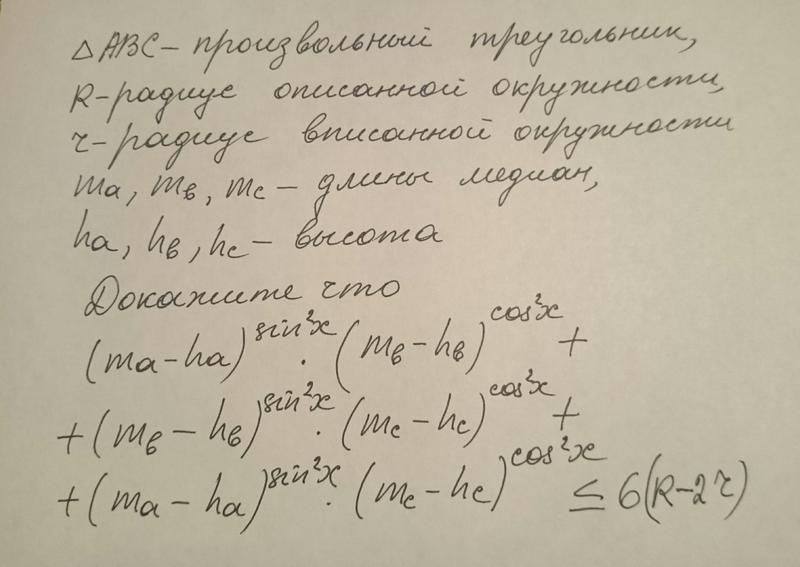 △ABC – произвольный треугольник,
R-радиус описанной окружности,
r-радиус вписанной окружности
ma, mb, mc – длины медиан,
ha, hb, hc – высота
Докажите что
(ma-ha)^sin²x · (mb-hb)^cos²x +
+(mb-hb)^sin²x · (mc-hc)^cos²x +
+(ma-ha)^sin²x · (mc-hc)^cos²x ≤ 6(R-2r)